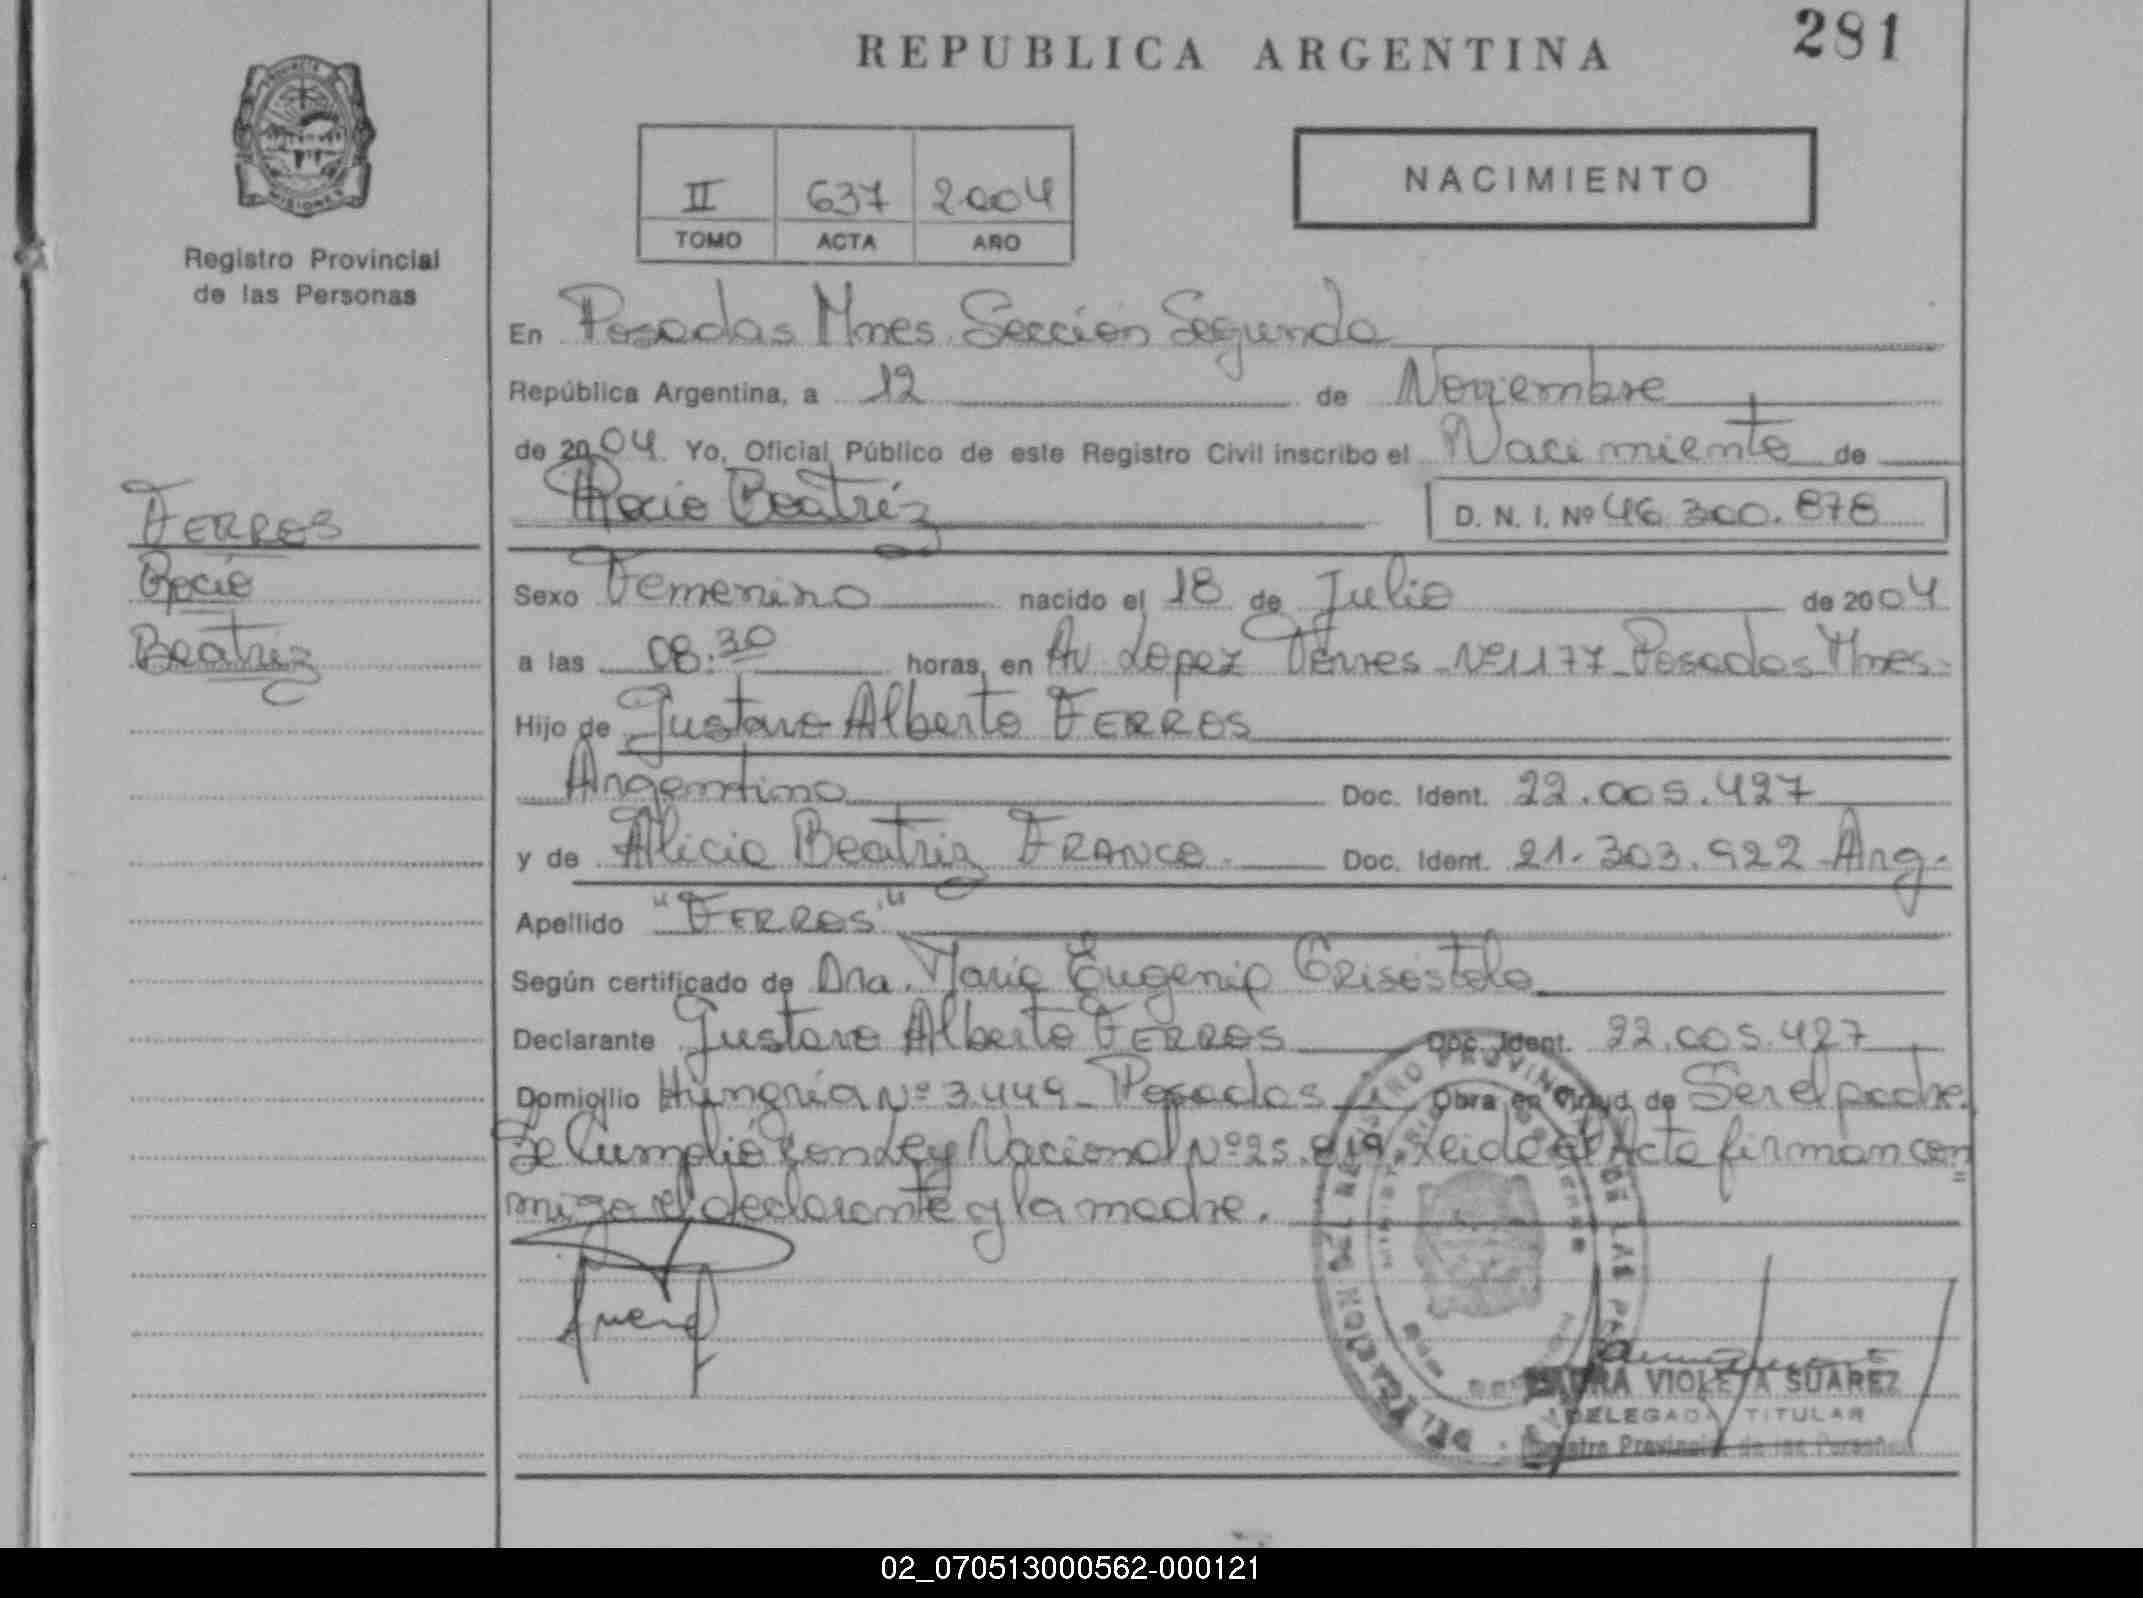 REPUBLICA ARGENTINA
281
II 637 2004
TOMO ACTA AÑO
NACIMIENTO
Registro Provincial
de las Personas
En Posadas Mnes. Sección Segunda
República Argentina, a 12 de Noviembre
de 2004 Yo, Oficial Público de este Registro Civil inscribo el Nacimiento de
Rocio Beatriz D. N. I. Nº 46.300.878
FERRES
Rocio
Beatriz
Sexo Femenino nacido el 18 de Julio de 2004
a las 08:30 horas, en Av. Lopez Torres Nº 1177 Posadas Mnes.
Hijo de Gustavo Alberto FERRES
Argentino Doc. Ident. 22.005.427
y de Alicia Beatriz FRANCO Doc. Ident. 21.303.922 Arg.
Apellido "FERRES"
Según certificado de Dra. Maria Eugenia
Declarante Gustavo Alberto FERRES Doc. Ident. 22.005.427
Domicilio Hungría Nº 3.449 Posadas Obra en virtud de Ser el padre.
Se Cumplió con Ley Nacional Nº 25. Leida el Acta firman con
migo el declarante y la madre.
VIOLETA SUAREZ
DELEGADA TITULAR
Registro Provincial de las Personas
02_070513000562-000121